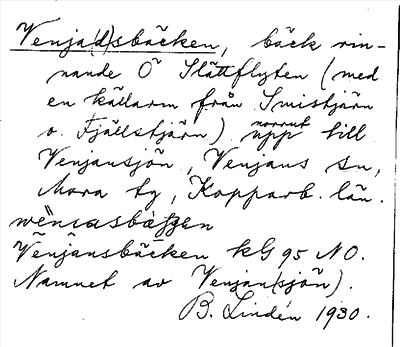 Venja(d)sbäcken, bäck rin-
nande Ö Slättflyten (med
en källarm från Smistjärn
o. Fjällstjärn) norrut upp till
Venjansjön, Venjans sn,
Mora tg, Kopparb. län.
Venjansbäcken kG 95 NO.
Namnet av Venjan(sjön).
B. Lindén 1930.